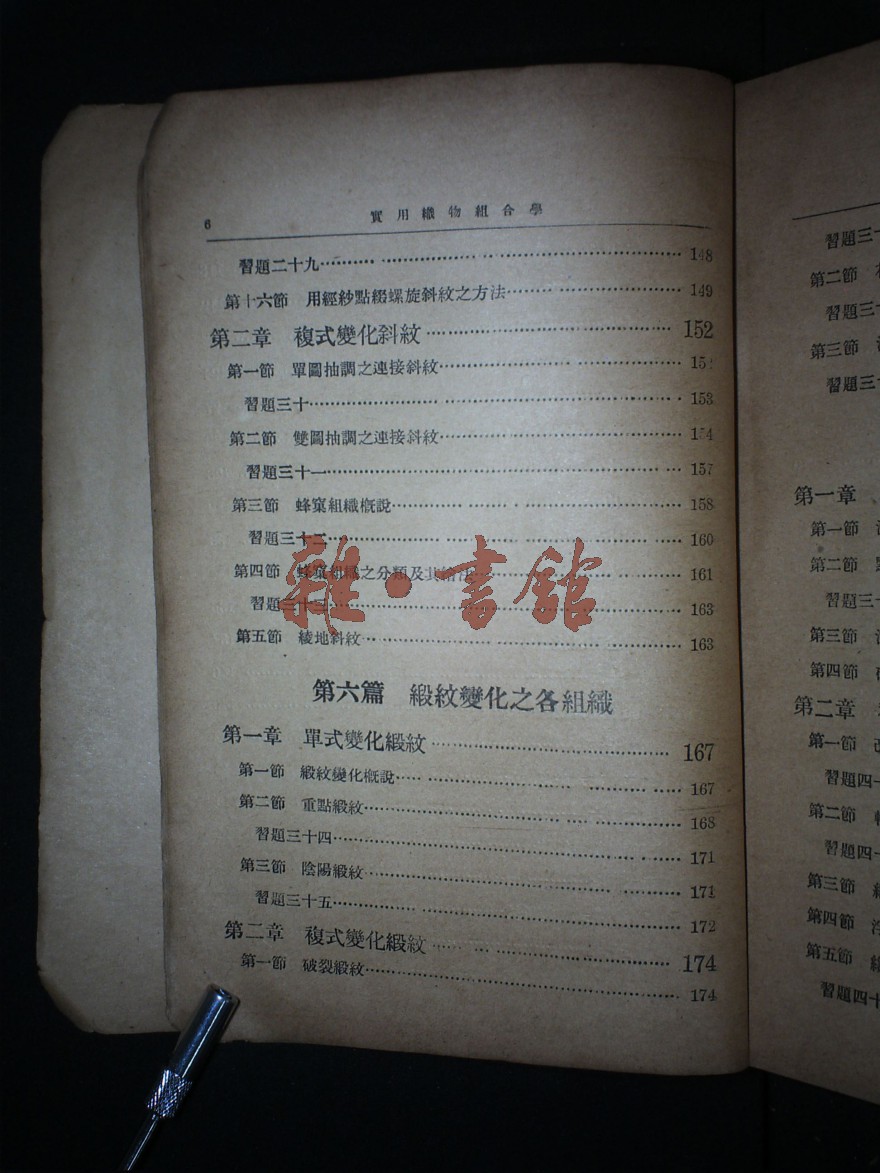 6 實用織物組合學
習題二十九 148
第十六節 用經紗點綴螺旋斜紋之方法 149
第二章 複式變化斜紋 152
第一節 單圖抽調之連接斜紋 152
習題三十 153
第二節 雙圖抽調之連接斜紋 154
習題三十一 157
第三節 蜂窠組織概說 158
習題三十二 160
第四節 蜂窠組織之分類及其繪法 161
習題三十三 163
第五節 綾地斜紋 163
第六篇 緞紋變化之各組織
第一章 單式變化緞紋 167
第一節 緞紋變化概說 167
第二節 重點緞紋 168
習題三十四 171
第三節 陰陽緞紋 171
習題三十五 172
第二章 複式變化緞紋 174
第一節 破裂緞紋 174
雜·書館
習題三十
第二節
習題三十
第三節
習題三十
第一章
第一節
第二節
習題三十
第三節
第四節
第二章
第一節 改
習題四十
第二節
習題四十
第三節
第四節
第五節
習題四十